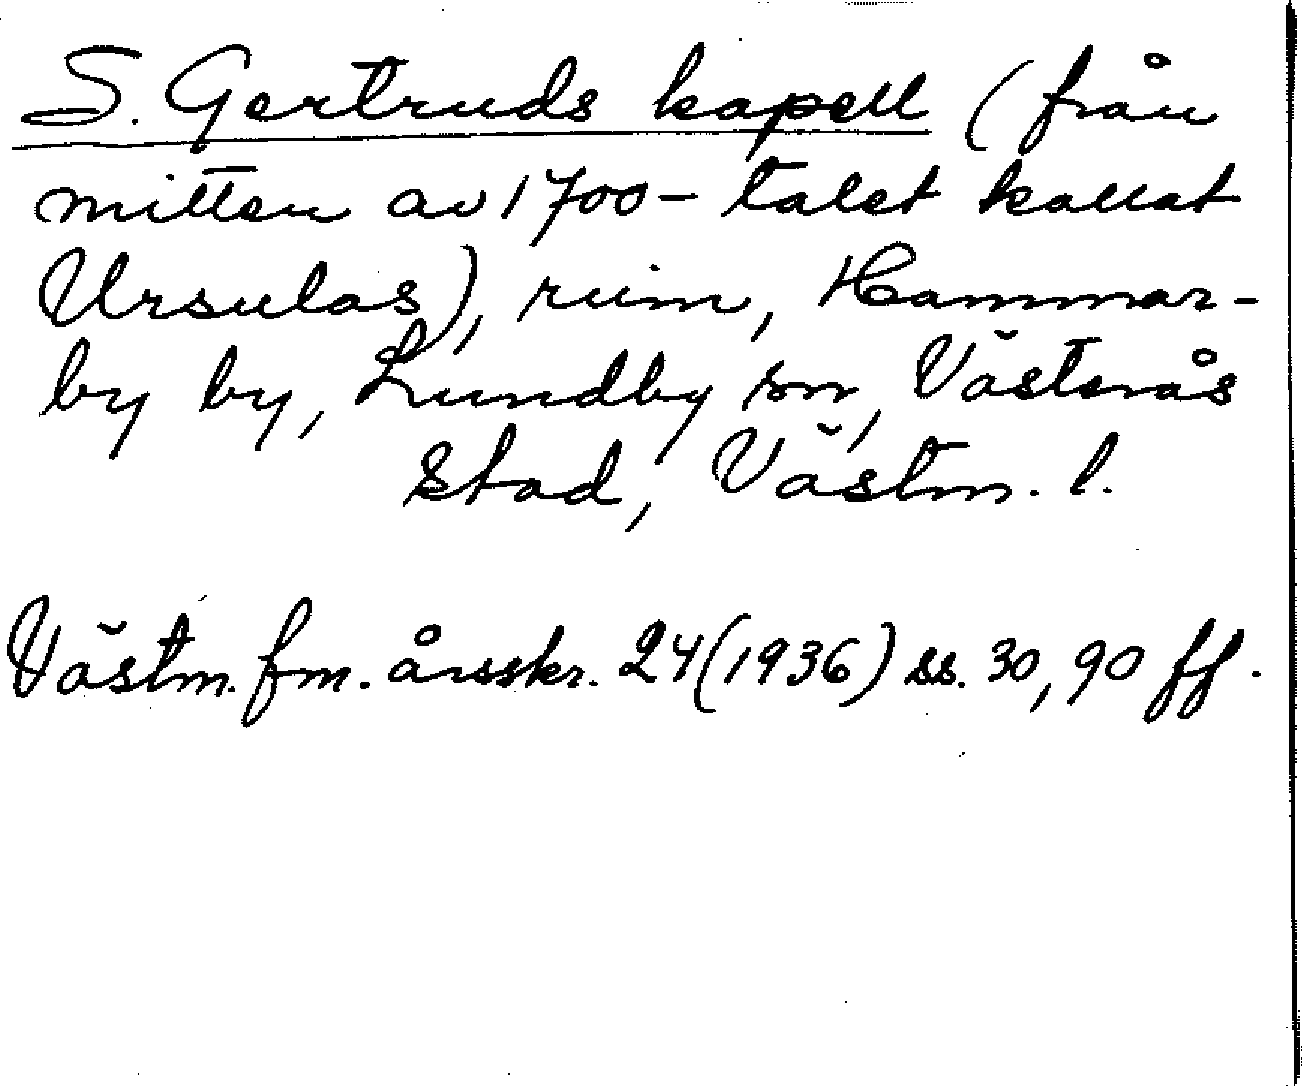 S. Gertruds kapell (från
mitten av 1700-talet kallat
Ursulas), ruin, Hammar-
by by, Lundby sn, Västerås
stad, Västm. l.
Västm. fm. årsskr. 24 (1936) ss. 30, 90 ff.